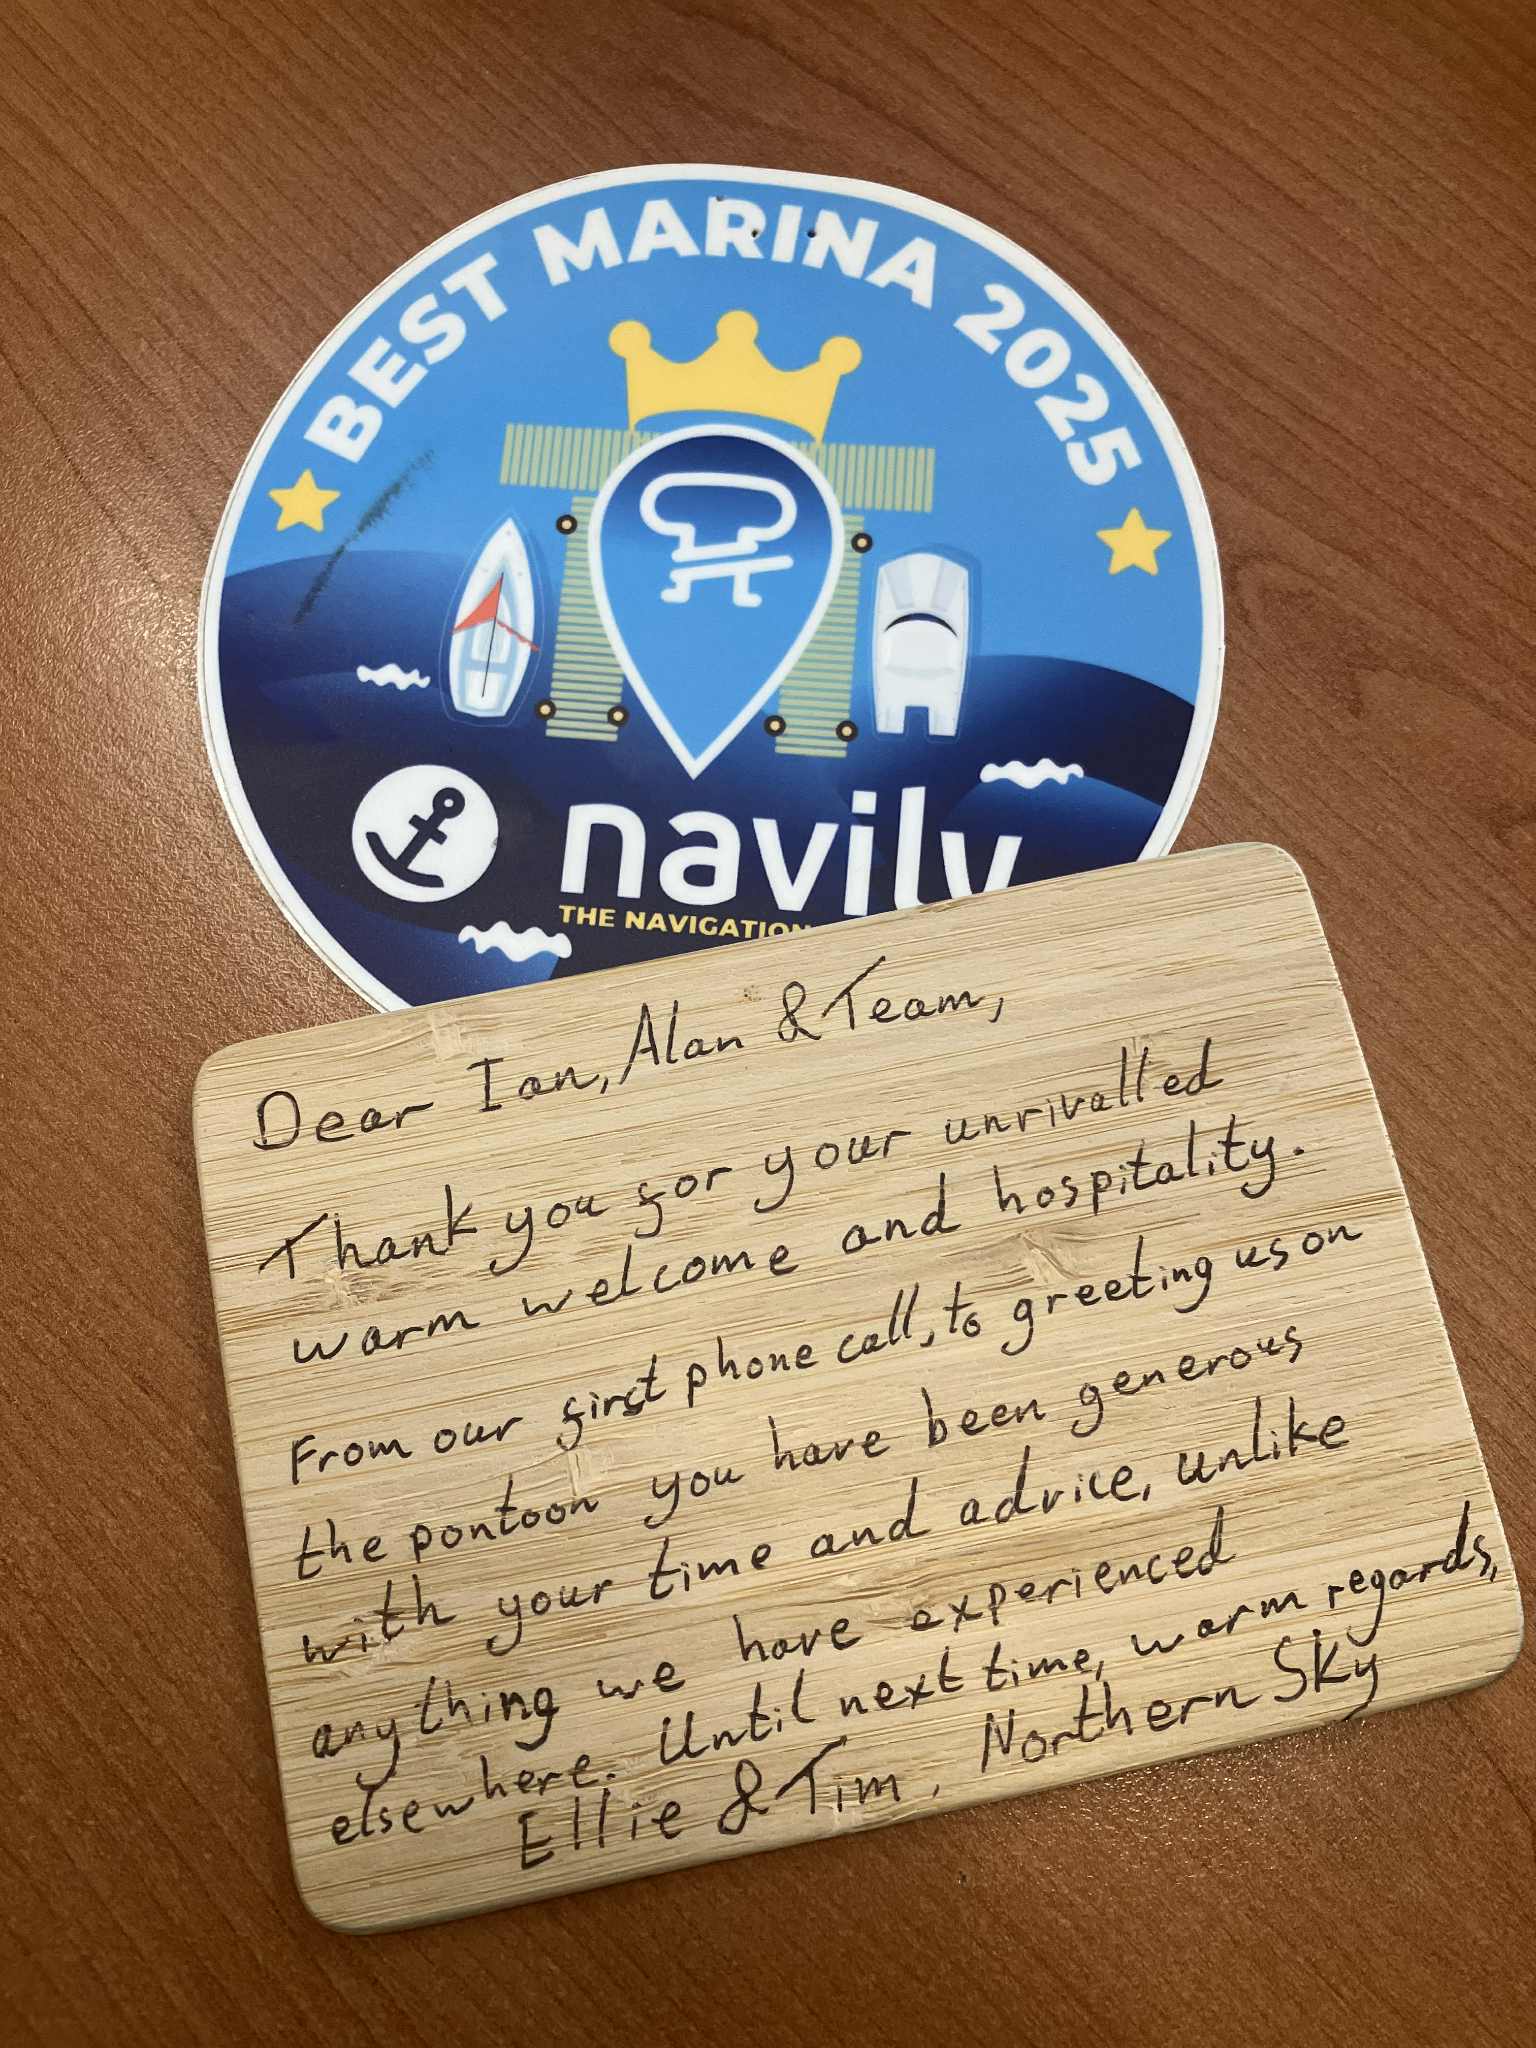 BEST MARINA 2025
navily
THE NAVIGATION
Dear Ian, Alan & Team,
Thank you for your unrivalled
warm welcome and hospitality.
From our first phone call, to greeting us on
the pontoon you have been generous
with your time and advice, unlike
anything we have experienced
elsewhere. Until next time, warm regards,
Ellie & Tim, Northern Sky